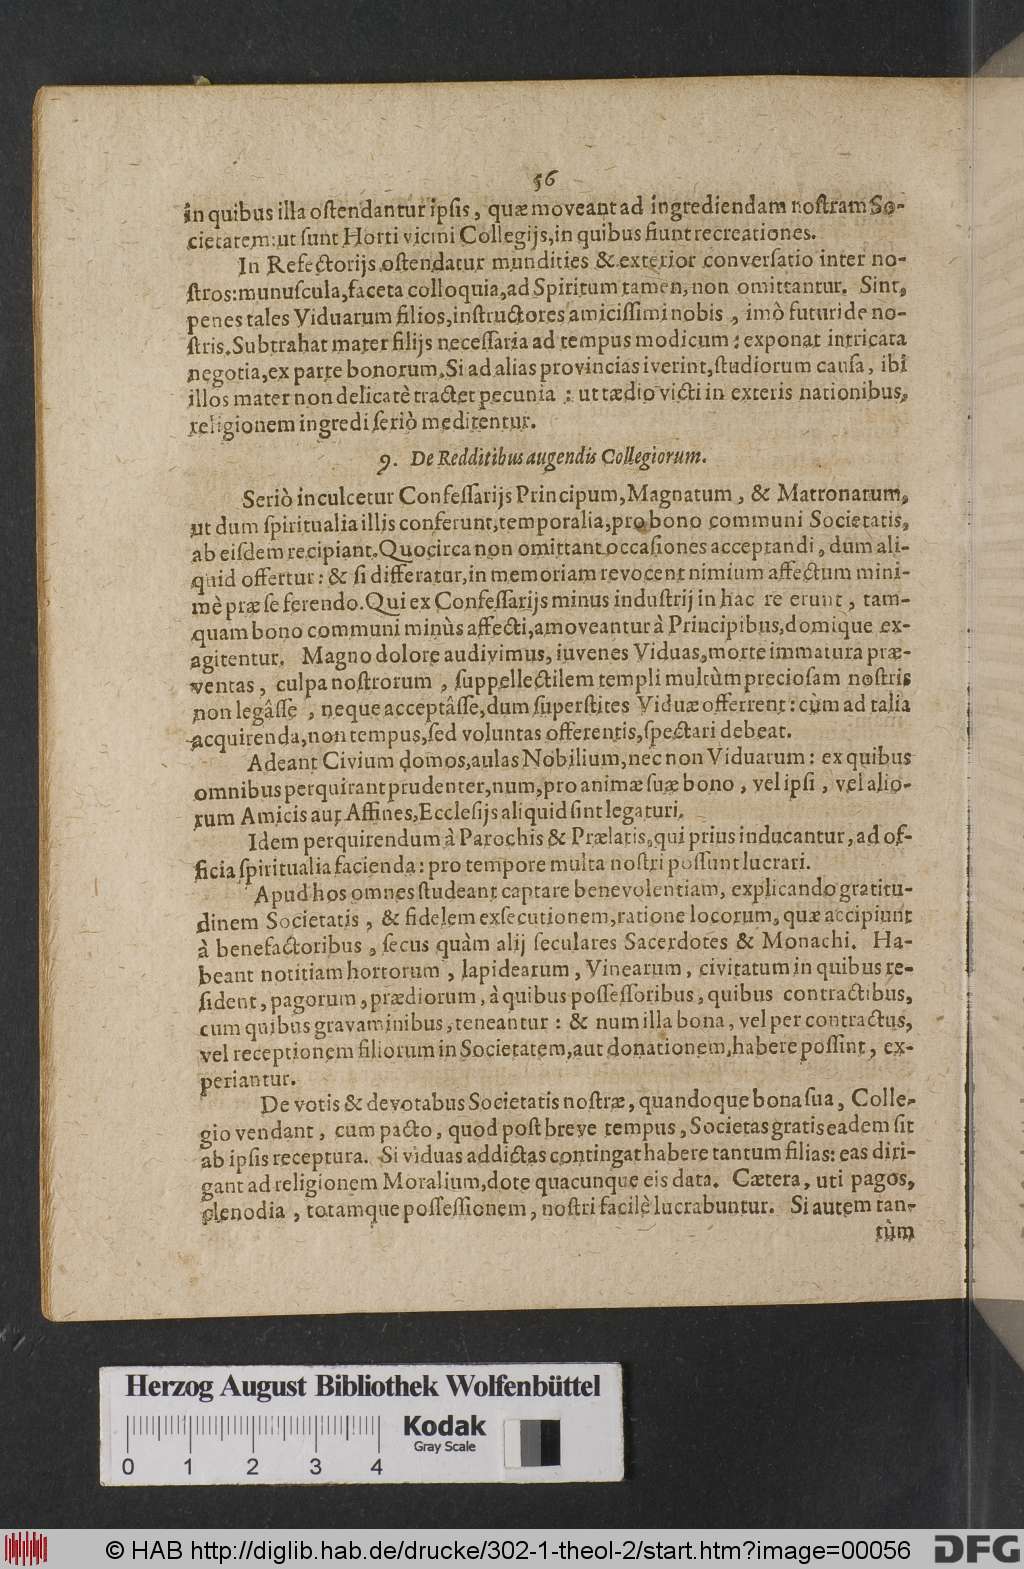 56
in quibus illa ostendantur ipsis, quæ moveant ad ingrediendam nostram So-
cietatem: ut sunt Horti vicini Collegijs, in quibus fiunt recreationes.
In Refectorijs ostendatur mundities & exterior conversatio inter no-
stros: munuscula, faceta colloquia, ad Spiritum tamen, non omittantur. Sint,
penes tales Viduarum filios, instructores amicissimi nobis, imò futuri de no-
stris. Subtrahat mater filijs necessaria ad tempus modicum: exponat intricata
negotia, ex parte bonorum. Si ad alias provincias iverint, studiorum causa, ibi
illos mater non delicatè tractet pecunia: ut tædio victi in exteris nationibus,
religionem ingredi seriò meditentur.
9. De Redditibus augendis Collegiorum.
Seriò inculcetur Confessarijs Principum, Magnatum, & Matronarum,
ut dum spiritualia illis conferunt, temporalia, pro bono communi Societatis,
ab eisdem recipiant. Quocirca non omittant occasiones acceptandi, dum ali-
quid offertur: & si differatur, in memoriam revocent nimium affectum mini-
mè præ se ferendo. Qui ex Confessarijs minus industrij in hac re erunt, tam-
quam bono communi minùs affecti, amoveantur à Principibus, domique ex-
agitentur. Magno dolore audivimus, iuvenes Viduas, morte immatura præ-
ventas, culpa nostrorum, suppellectilem templi multùm preciosam nostris
non legâsse, neque acceptâsse, dum superstites Viduæ offerrent: cùm ad talia
acquirenda, non tempus, sed voluntas offerentis, spectari debeat.
Adeant Civium domos, aulas Nobilium, nec non Viduarum: ex quibus
omnibus perquirant prudenter, num, pro animæ suæ bono, vel ipsi, vel alio-
rum Amicis aut Affines, Ecclesijs aliquid sint legaturi.
Idem perquirendum à Parochis & Prælatis, qui prius inducantur, ad of-
ficia spiritualia facienda: pro tempore multa nostri possunt lucrari.
Apud hos omnes studeant captare benevolentiam, explicando gratitu-
dinem Societatis, & fidelem exsecutionem, ratione locorum, quæ accipiunt
à benefactoribus, secus quàm alij seculares Sacerdotes & Monachi. Ha-
beant notitiam hortorum, lapidearum, Vinearum, civitatum in quibus re-
sident, pagorum, prædiorum, à quibus possessoribus, quibus contractibus,
cum quibus gravaminibus, teneantur: & num illa bona, vel per contractus,
vel receptionem filiorum in Societatem, aut donationem, habere possint, ex-
periantur.
De votis & devotabus Societatis nostræ, quandoque bona sua, Colle-
gio vendant, cum pacto, quod post breve tempus, Societas gratis eadem sit
ab ipsis receptura. Si viduas addictas contingat habere tantum filias: eas diri-
gant ad religionem Moralium, dote quacunque eis data. Cætera, uti pagos,
clenodia, totamque possessionem, nostri facilè lucrabuntur. Si autem tan-
tùm
Herzog August Bibliothek Wolfenbüttel
Kodak
Gray Scale
0 1 2 3 4
© HAB http://diglib.hab.de/drucke/302-1-theol-2/start.htm?image=00056
DFG